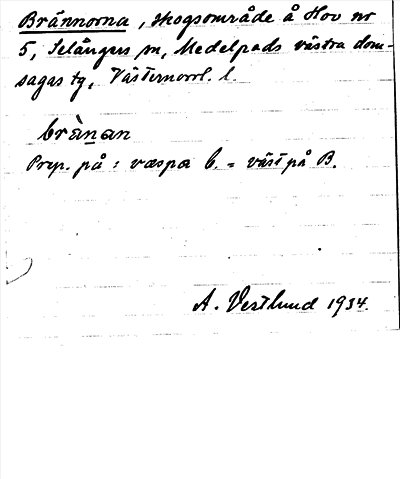 Brännorna, skogsområde å Hov nr
5, Selångers sn, Medelpads västra dom-
sagas tg, Västernorrl. l.
brànan
Prep. på: væspa b. = väst på B.
A. Vestlund 1934.